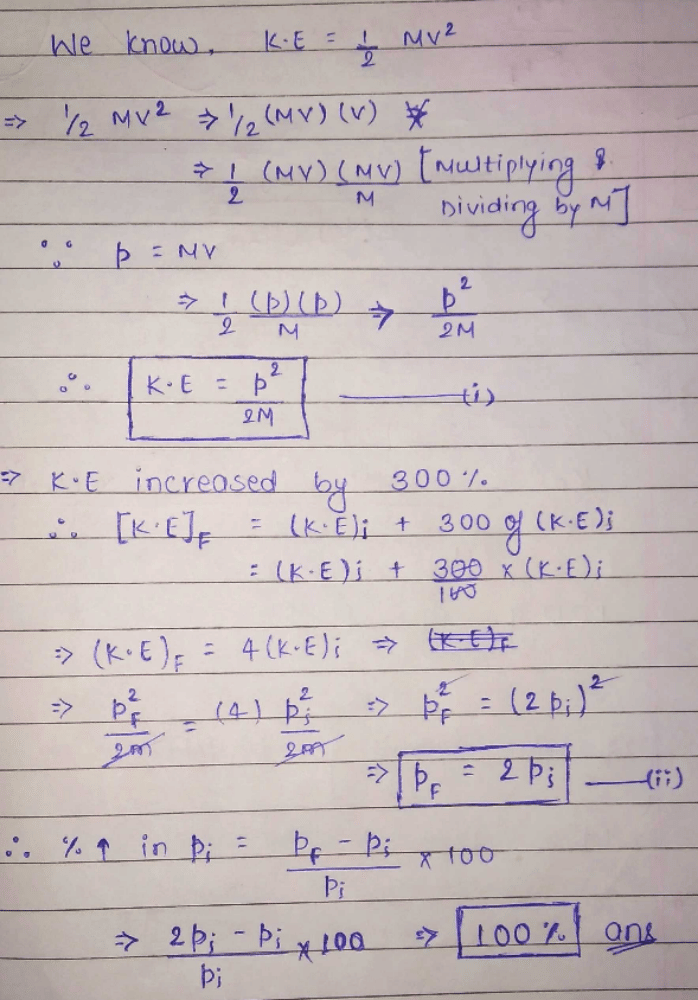 We know, K·E = 1/2 MV²
⇒ 1/2 MV² ⇒ 1/2 (MV) (V)
⇒ 1/2 (MV) (MV)/M [Multiplying & Dividing by M]
∵ p = MV
⇒ 1/2 (p)(p)/M ⇒ p²/2M
∴ K·E = p²/2M ——— (i)
⇒ K·E increased by 300%.
∴ [K·E]F = (K·E)i + 300 of (K·E)i
= (K·E)i + 300/100 × (K·E)i
⇒ (K·E)F = 4(K·E)i ⇒ (K·E)F
⇒ pF²/2m = (4) pi²/2m ⇒ pF² = (2pi)²
⇒ pF = 2pi ——— (ii)
∴ % ↑ in pi = (pF - pi)/pi × 100
⇒ (2pi - pi)/pi × 100 ⇒ 100% ans